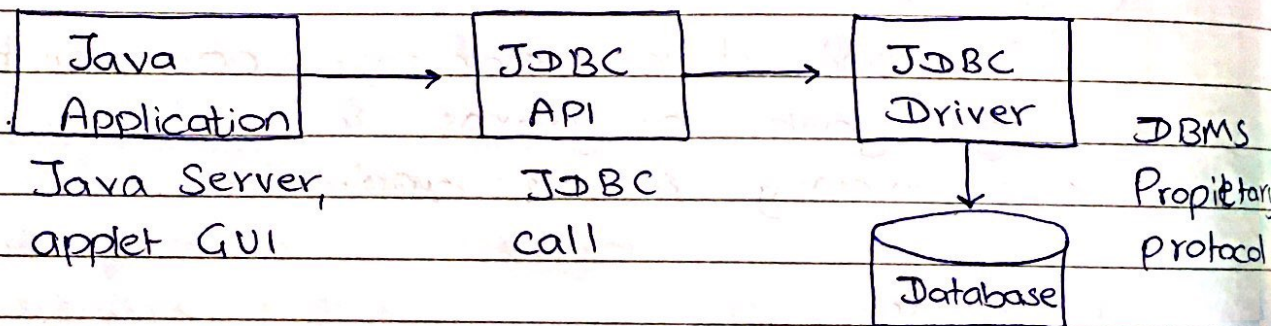 Java
Application
JDBC
API
JDBC
Driver
Java Server,
applet GUI
JDBC
call
DBMS
Propietary
protocol
Database